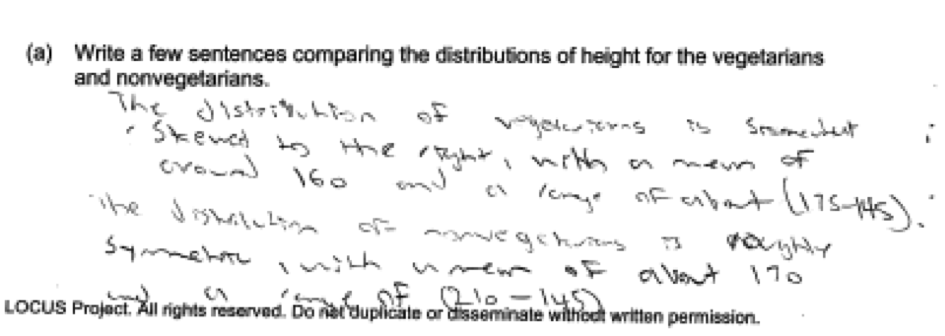 (a) Write a few sentences comparing the distributions of height for the vegetarians
and nonvegetarians.
The distribution of vegetarians is somewhat
skewed to the right, with a mean of
around 160 and a range of about (175-145).
The distribution of nonvegetarians is roughly
symmetric, with a mean of about 170
and a range of (210-145)
LOCUS Project. All rights reserved. Do not duplicate or disseminate without written permission.